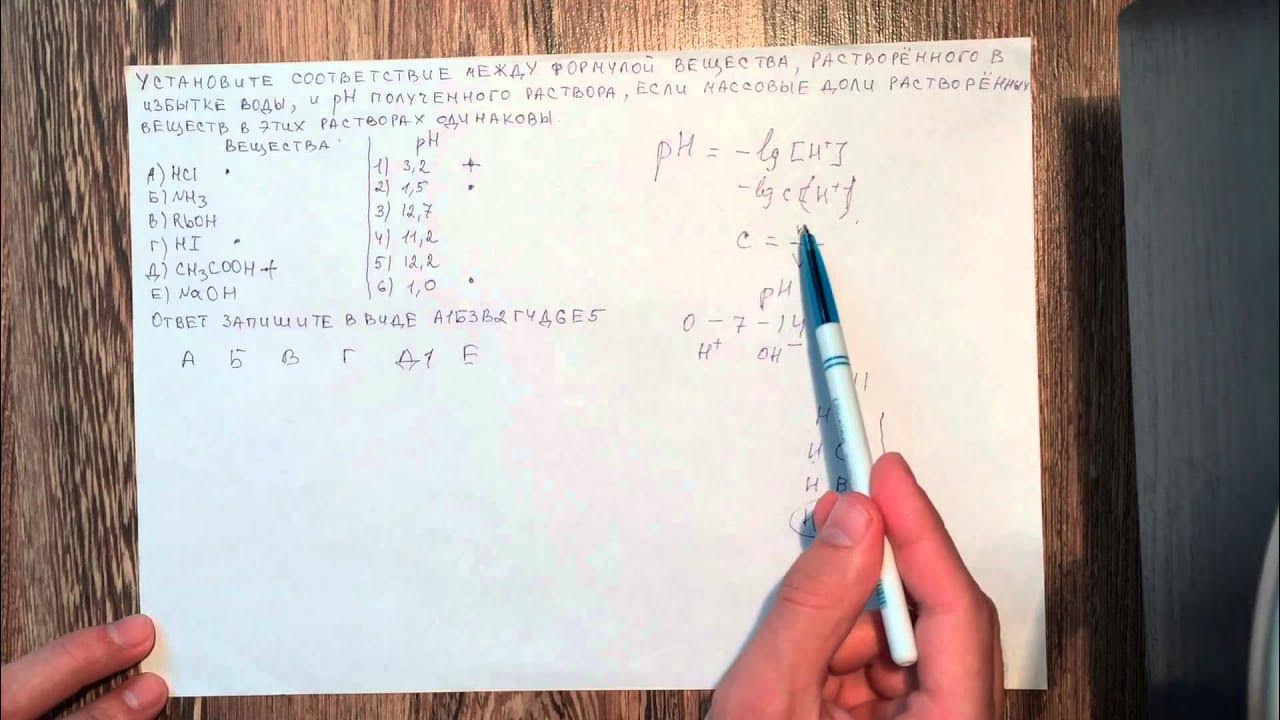 УСТАНОВИТЕ СООТВЕТСТВИЕ МЕЖДУ ФОРМУЛОЙ ВЕЩЕСТВА, РАСТВОРЁННОГО В
ИЗБЫТКЕ ВОДЫ, И pH ПОЛУЧЕННОГО РАСТВОРА, ЕСЛИ МАССОВЫЕ ДОЛИ РАСТВОРЁННЫХ
ВЕЩЕСТВ В ЭТИХ РАСТВОРАХ ОДИНАКОВЫ.
ВЕЩЕСТВА: pH
А) HCl • 1) 3,2 +
Б) NH3 2) 1,5 •
В) RbOH 3) 12,7
Г) HI • 4) 11,2
Д) CH3COOH + 5) 12,2
Е) NaOH 6) 1,0 •
ОТВЕТ ЗАПИШИТЕ В ВИДЕ А1Б3В2Г4Д6Е5
А Б В Г Д1 Е
pH = -lg [H+]
-lg c[H+]
c =
pH
0 - 7 - 14
H+ OH-
H
H
H B
H